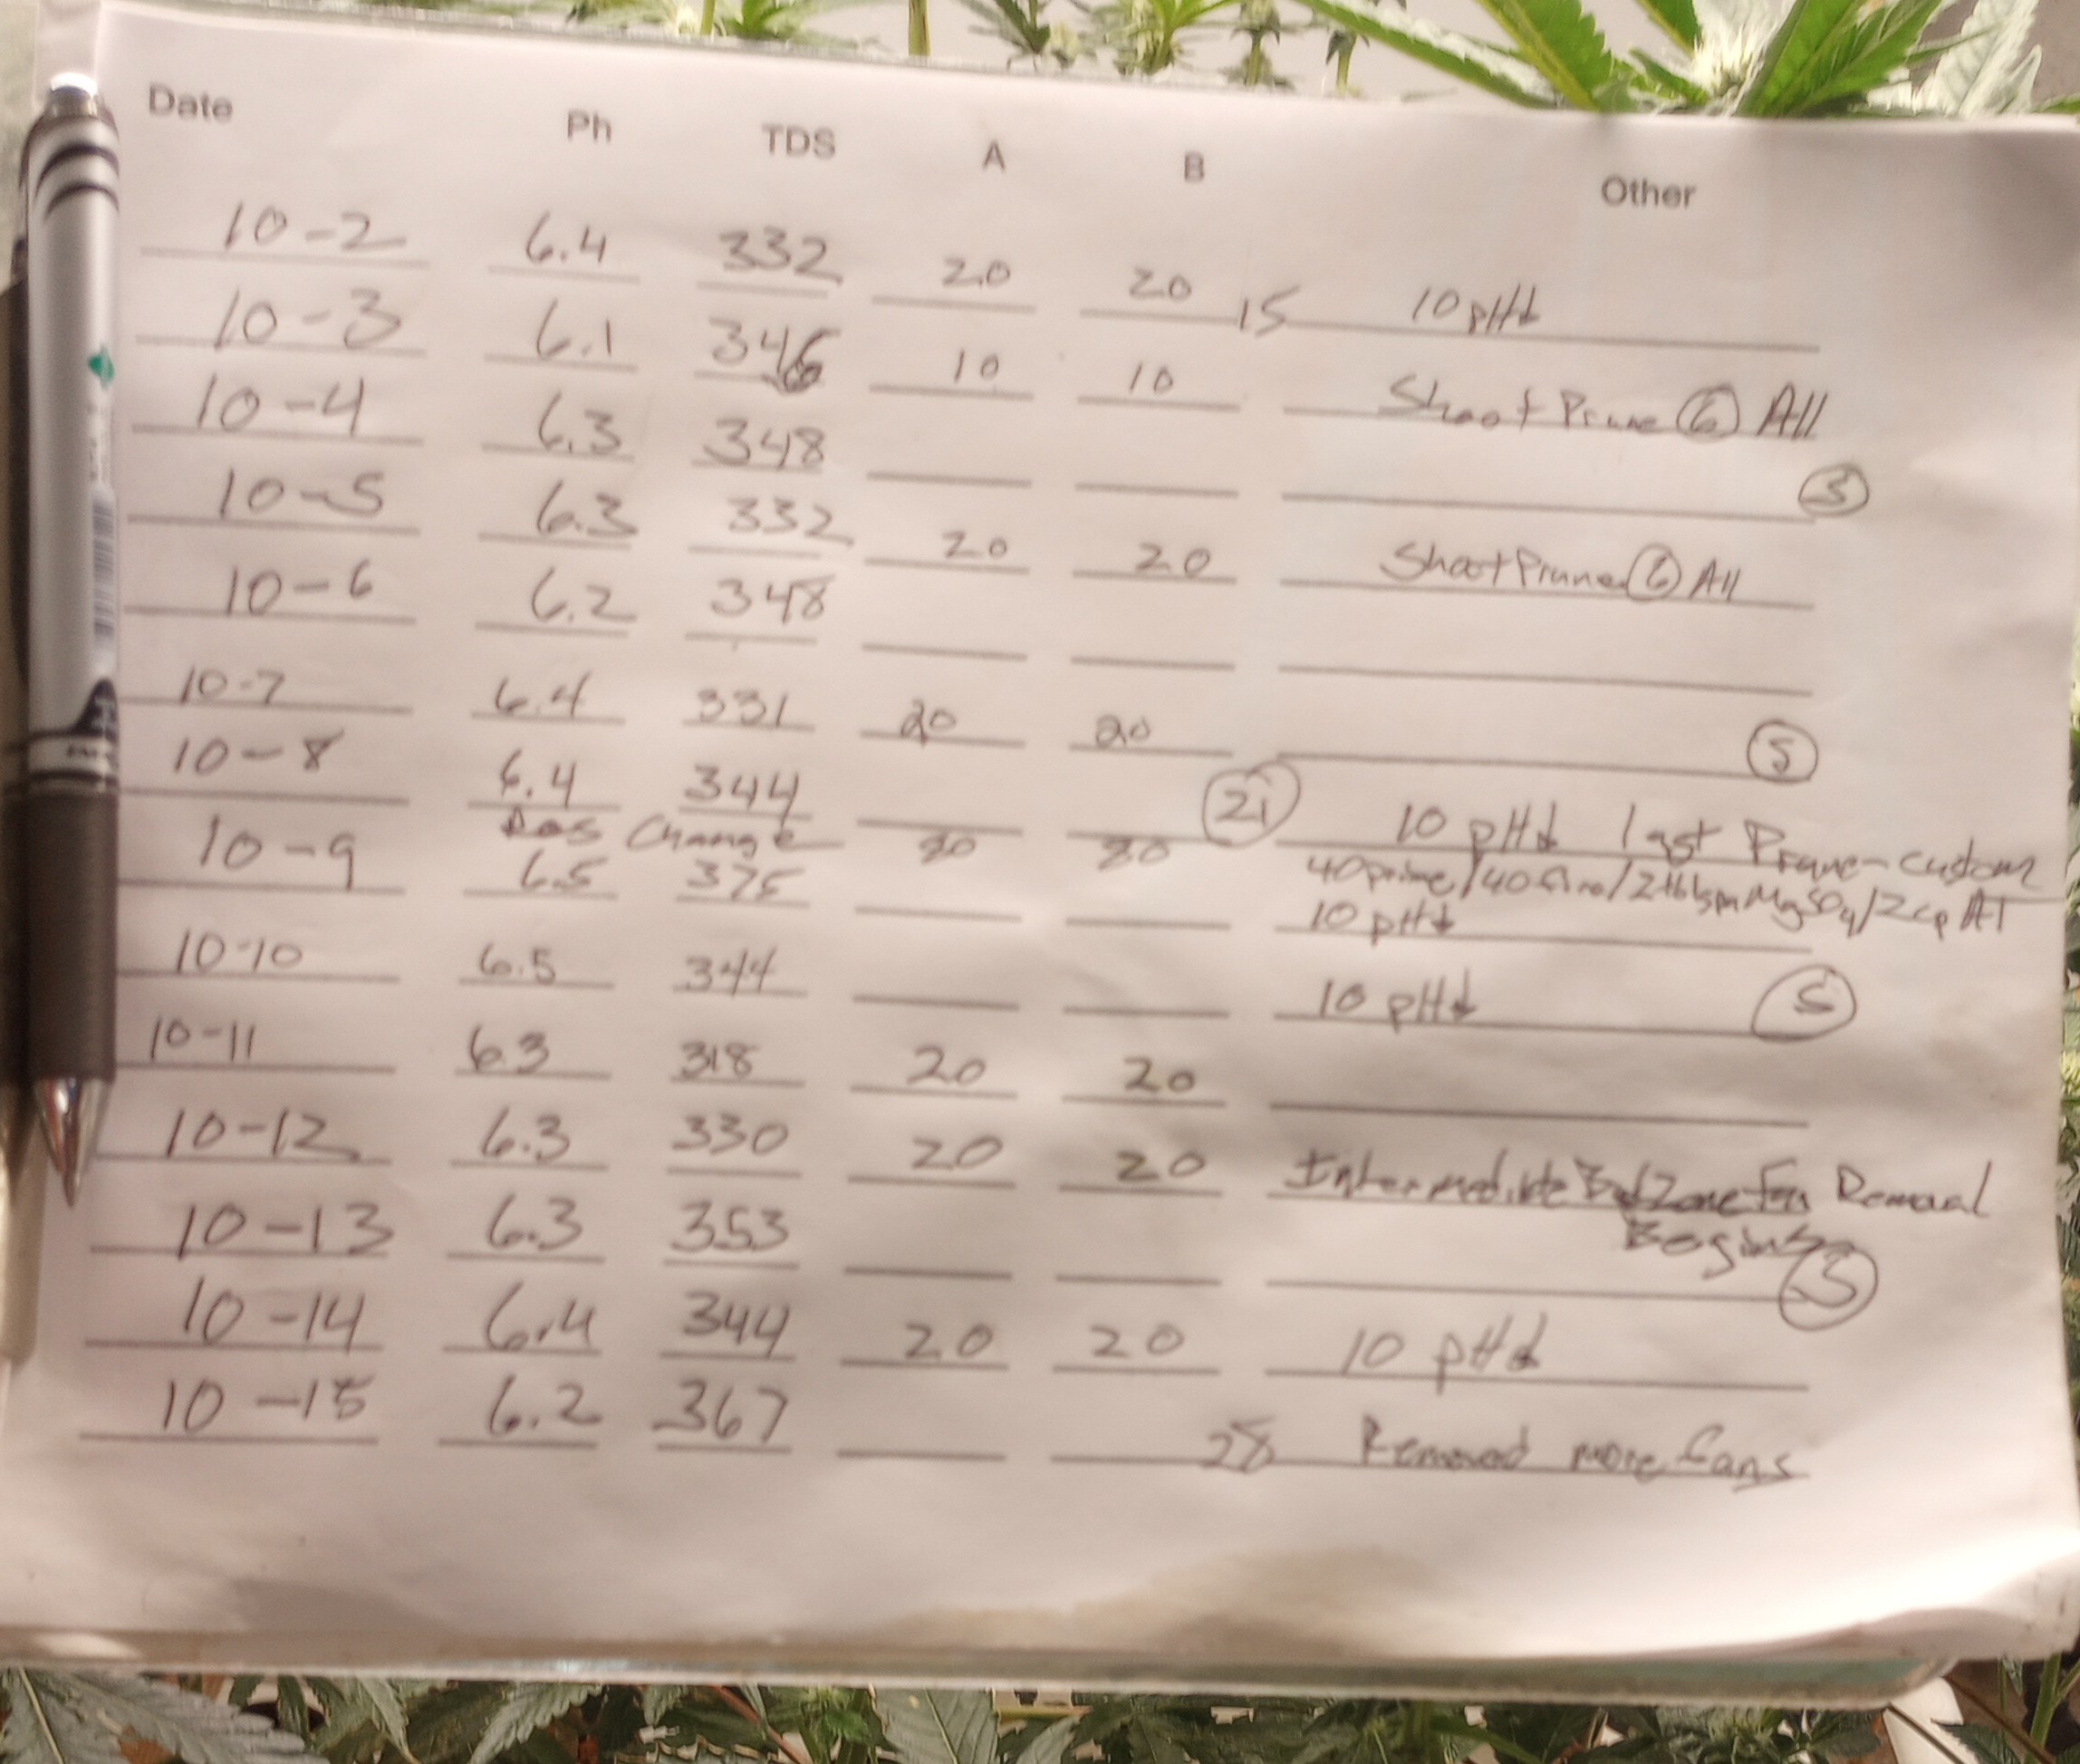 Date Ph TDS A B Other
10-2 6.4 332 20 20 15 10 pH↓
10-3 6.1 346 10 10 Shoot Prune 6 All
10-4 6.3 348
10-5 6.3 332 20 20 Shoot Prune 6 All
10-6 6.2 348
10-7 6.4 331 20 20 5
10-8 6.4 344 21 10 pH↓ last Prune-custom
Res Change 80 80 40 prime/40 /2 tblspn MgSO4/2cp AT
10-9 6.5 375 10 pH↓
10-10 6.5 344 10 pH↓ 5
10-11 6.3 318 20 20
10-12 6.3 330 20 20 Intermediate Bud Zone Fan Removal
Begins
10-13 6.3 353 5
10-14 6.4 344 20 20 10 pH↓
10-15 6.2 367 28 Removed more fans